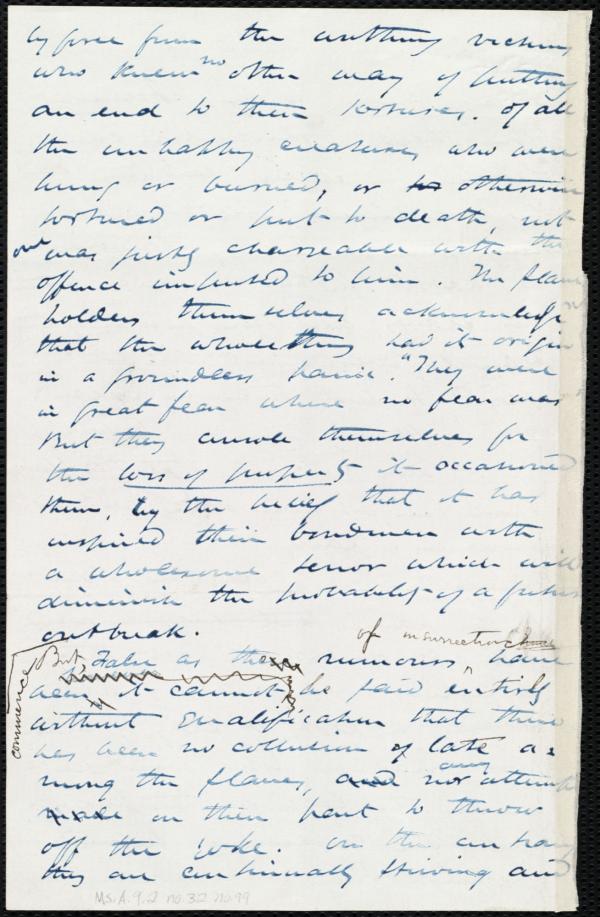 by force from the writhing victims
who knew no other way of putting
an end to their tortures. Of all
the unhappy creatures who were
hung or burned, or otherwise
tortured or put to death, not
one was justly chargeable with the
offence imputed to him. The slave
holders themselves acknowledge
that the whole thing had its origin
in a groundless panic. "They were
in great fear where no fear was
But they console themselves for
the loss of property it occasioned
them, by the belief that it has
inspired their bondmen with
a wholesome terror which will
diminish the probability of a future
outbreak.
But, False as the rumours of insurrection have
been it cannot be said entirely
without qualification that there
has been no collusion of late a-
mong the slaves, nor any attempt
on their part to throw
off the yoke. On the contrary
they are continually striving and
commence
Ms.A.9.2 no.32 no.99